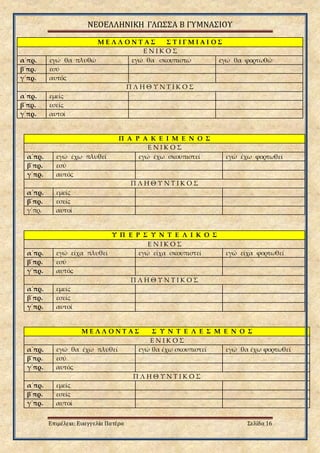 ΝΕΟΕΛΛΗΝΙΚΗ ΓΛΩΣΣΑ Β ΓΥΜΝΑΣΙΟΥ
ΜΕΛΛΟΝΤΑΣ ΣΤΙΓΜΙΑΙΟΣ
ΕΝΙΚΟΣ
α΄πρ. εγώ θα πλυθώ εγώ θα σκουπιστώ εγώ θα φορτωθώ
β΄πρ. εσύ
γ΄πρ. αυτός
ΠΛΗΘΥΝΤΙΚΟΣ
α΄πρ. εμείς
β΄πρ. εσείς
γ΄πρ. αυτοί
ΠΑΡΑΚΕΙΜΕΝΟΣ
ΕΝΙΚΟΣ
α΄πρ. εγώ έχω πλυθεί εγώ έχω σκουπιστεί εγώ έχω φορτωθεί
β΄πρ. εσύ
γ΄πρ. αυτός
ΠΛΗΘΥΝΤΙΚΟΣ
α΄πρ. εμείς
β΄πρ. εσείς
γ΄πρ. αυτοί
ΥΠΕΡΣΥΝΤΕΛΙΚΟΣ
ΕΝΙΚΟΣ
α΄πρ. εγώ είχα πλυθεί εγώ είχα σκουπιστεί εγώ είχα φορτωθεί
β΄πρ. εσύ
γ΄πρ. αυτός
ΠΛΗΘΥΝΤΙΚΟΣ
α΄πρ. εμείς
β΄πρ. εσείς
γ΄πρ. αυτοί
ΜΕΛΛΟΝΤΑΣ ΣΥΝΤΕΛΕΣΜΕΝΟΣ
ΕΝΙΚΟΣ
α΄πρ. εγώ θα έχω πλυθεί εγώ θα έχω σκουπιστεί εγώ θα έχω φορτωθεί
β΄πρ. εσύ
γ΄πρ. αυτός
ΠΛΗΘΥΝΤΙΚΟΣ
α΄πρ. εμείς
β΄πρ. εσείς
γ΄πρ. αυτοί
Επιμέλεια: Ευαγγελία Πατέρα Σελίδα 16